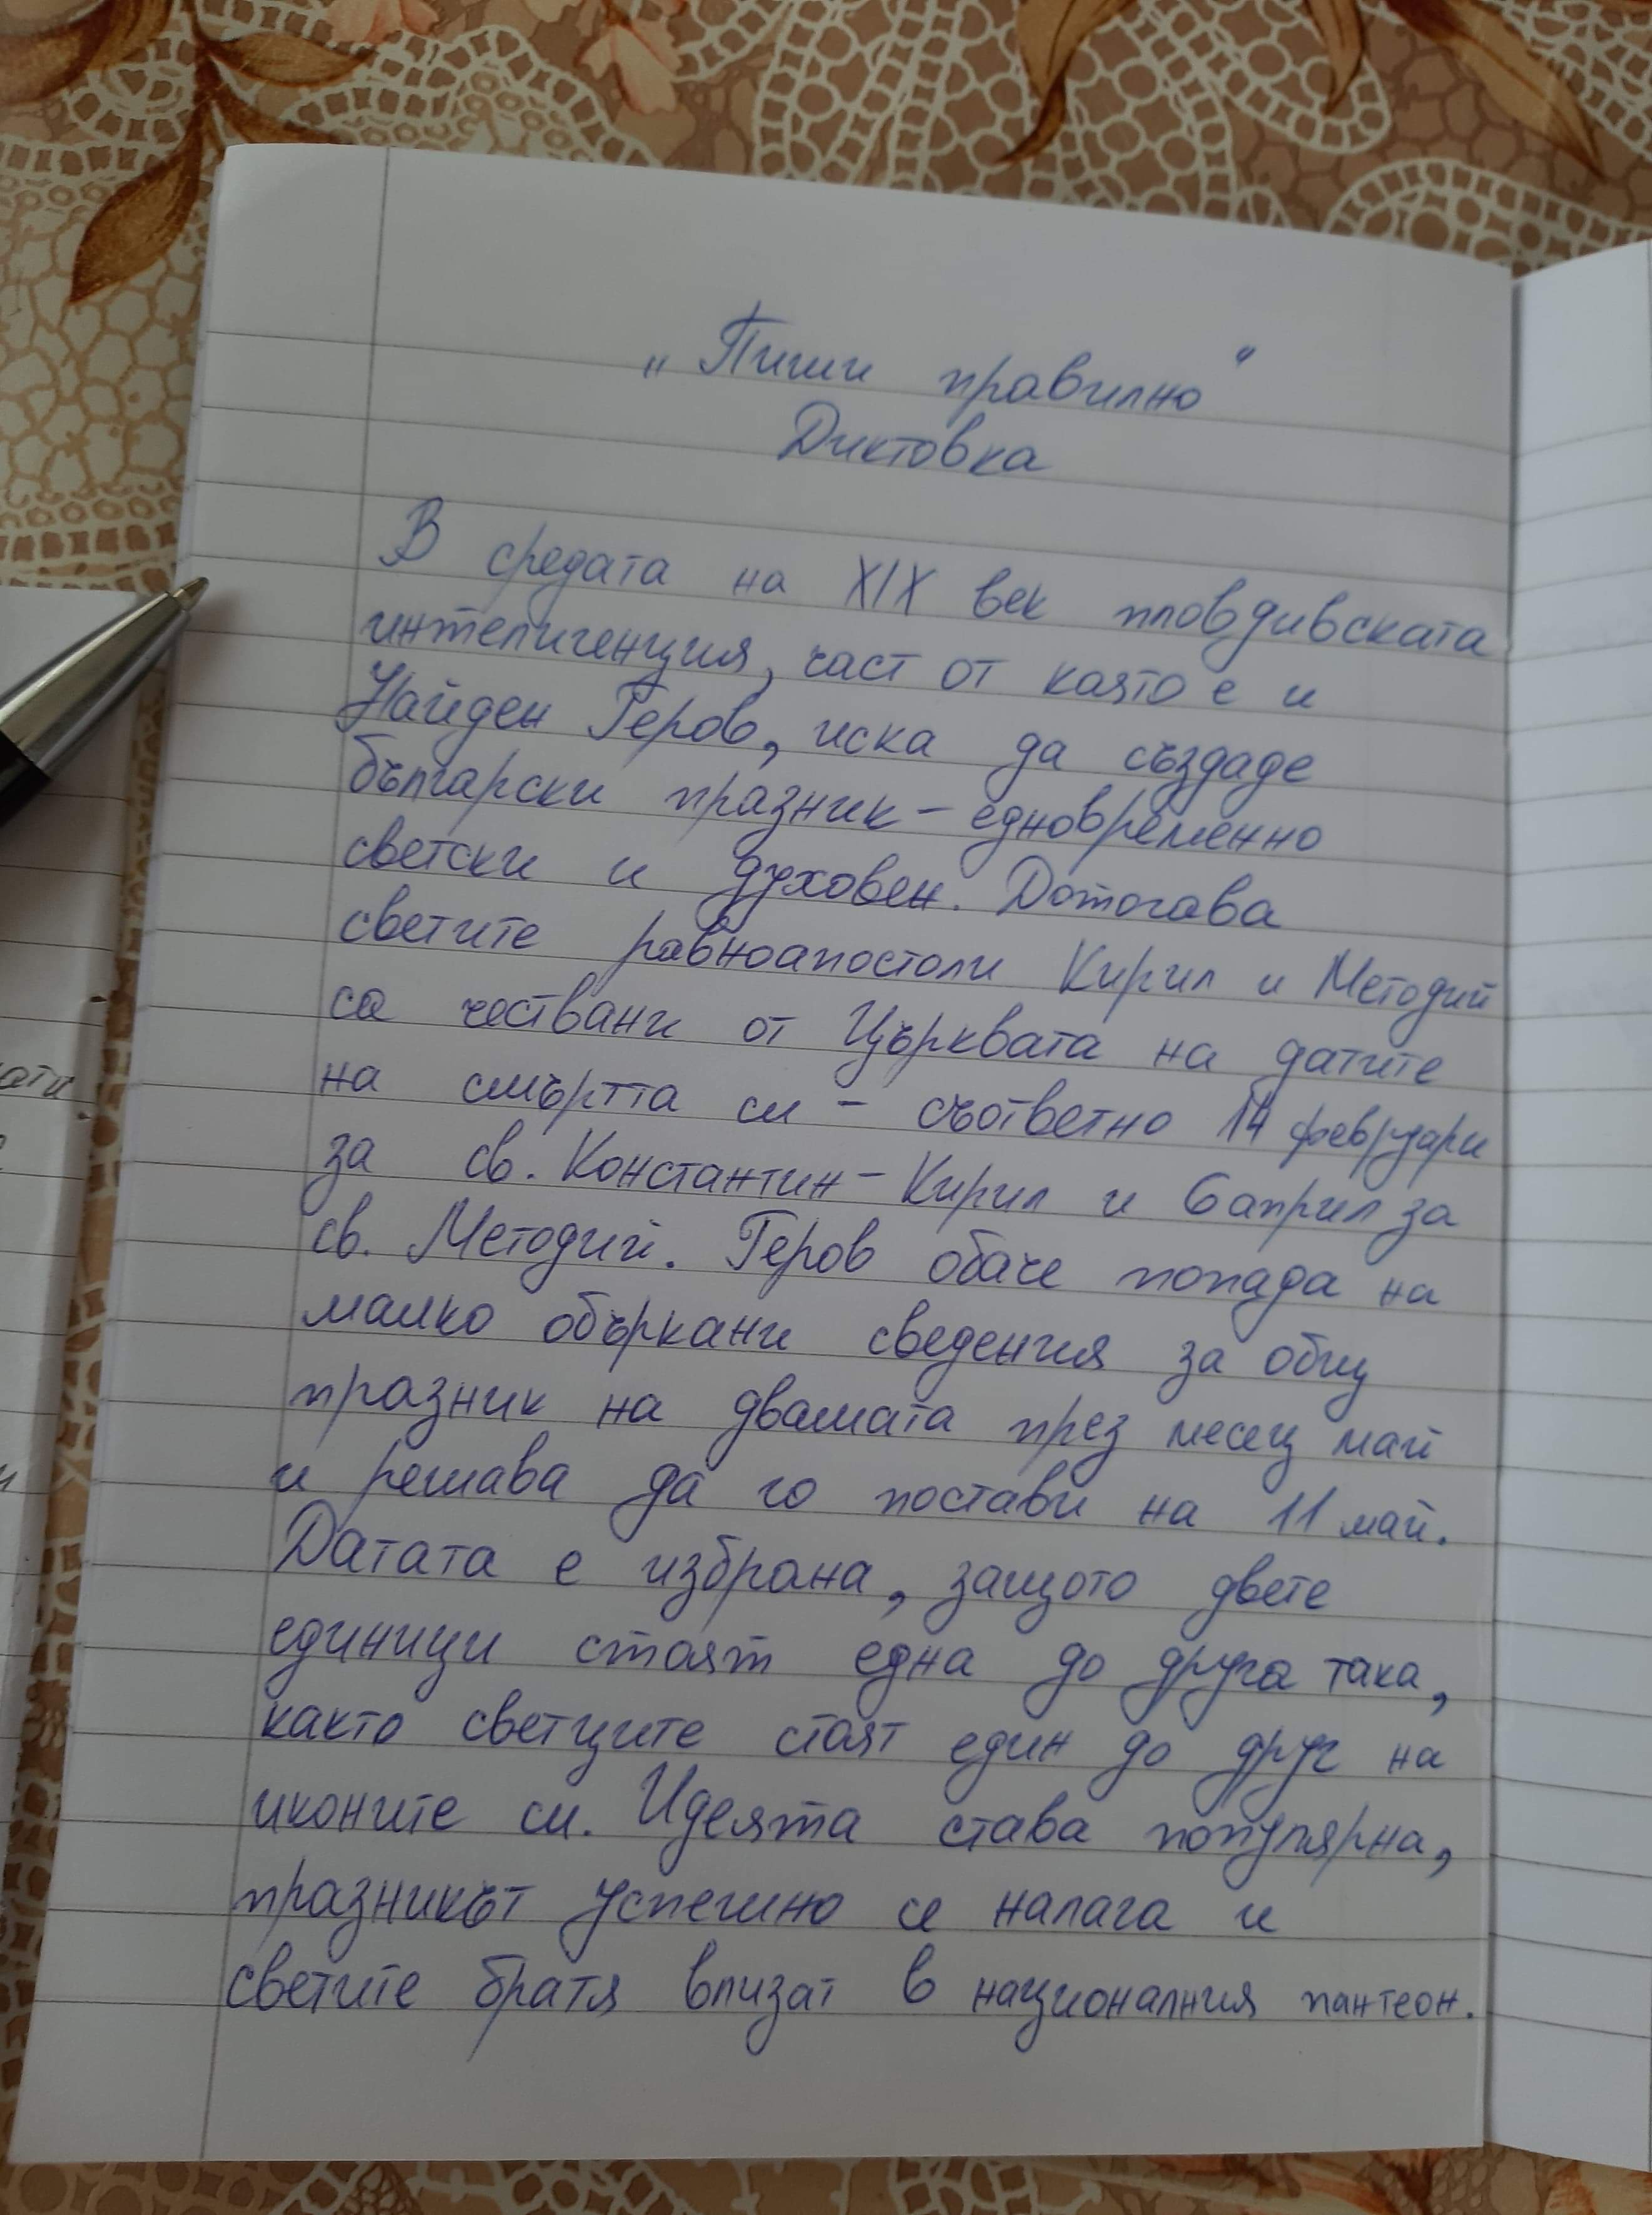 „Пиши правилно“
Диктовка
В средата на XIX век пловдивската
интелигенция, част от която е и
Найден Геров, иска да създаде
български празник – едновременно
светски и духовен. Дотогава
светите равноапостоли Кирил и Методий
са чествани от Църквата на датите
на смъртта си – съответно 14 февруари
за св. Константин-Кирил и 6 април за
св. Методий. Геров обаче попада на
малко объркани сведения за общ
празник на двамата през месец май
и решава да го постави на 11 май.
Датата е избрана, защото двете
единици стоят една до друга така,
както светците стоят един до друг на
иконите си. Идеята става популярна,
празникът успешно се налага и
светите братя влизат в националния пантеон.